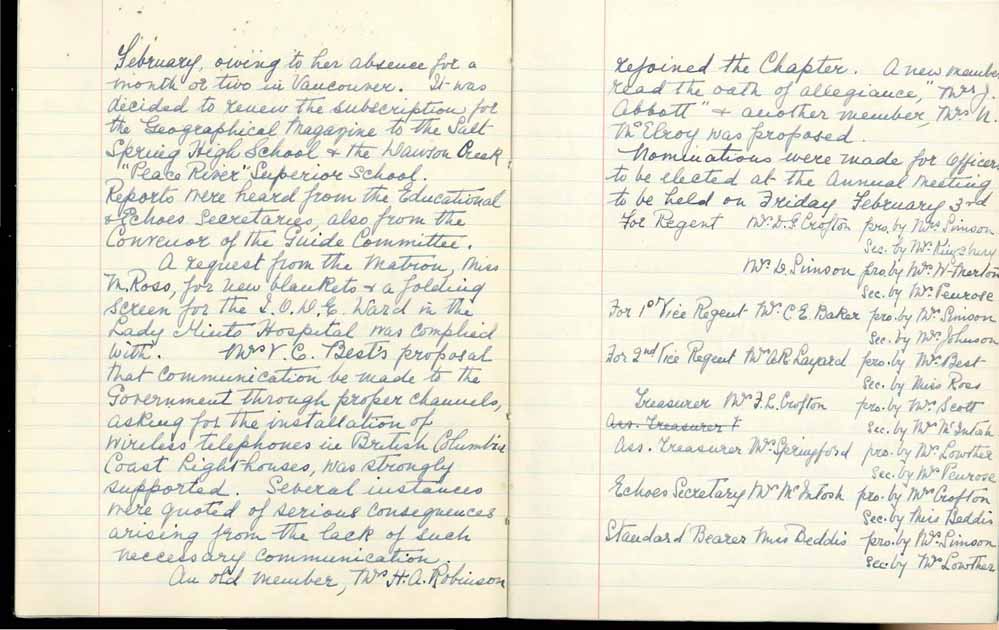 February, owing to her absence for a
month or two in Vancouver. It was
decided to renew the subscription for
the Geographical Magazine to the Salt
Spring High School & the Dawson Creek
"Peace River" Superior School.
Reports were heard from the Educational
& Echoes Secretaries, also from the
Convenor of the Guide Committee.
A request from the Matron, Miss
M. Ross, for new blankets & a folding
screen for the I.O.D.E. Ward in the
Lady Minto Hospital was complied
with. Mrs V. C. Best's proposal
that communication be made to the
Government through proper channels,
asking for the installation of
wireless telephones in British Columbia
Coast Lighthouses, was strongly
supported. Several instances
were quoted of serious consequences
arising from the lack of such
necessary communication
An old member, Mrs H. A. Robinson
rejoined the Chapter. A new member
read the oath of allegiance, "Mrs J.
Abbott" & another member, Mrs N.
McElroy was proposed.
Nominations were made for Officers
to be elected at the Annual Meeting
to be held on Friday February 3rd
For Regent Mrs D. G. Crofton pro. by Mrs Simson
Sec. by Mrs Kingsbury
Mrs D. Simson pro. by Mrs W. Merton
Sec. by Mrs Penrose
For 1st Vice Regent Mrs C. E. Baker pro. by Mrs Simson
Sec. by Mrs Johnson
For 2nd Vice Regent Mrs A.R. Layard pro. by Mrs Best
Sec. by Miss Ross
Treasurer Mrs F. L. Crofton pro. by Mrs Scott
Ass. Treasurer F Sec. by Mrs McIntosh
Ass. Treasurer Mrs Springford pro. by Mrs Lowther
Sec. by Mrs Penrose
Echoes Secretary Mrs McIntosh pro. by Mrs Crofton
Sec. by Miss Beddis
Standard Bearer Miss Beddis pro. by Mrs Simson
Sec. by Mrs Lowther